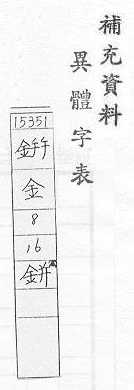 補充資料
異體字表
15351
金
8
16
鉼